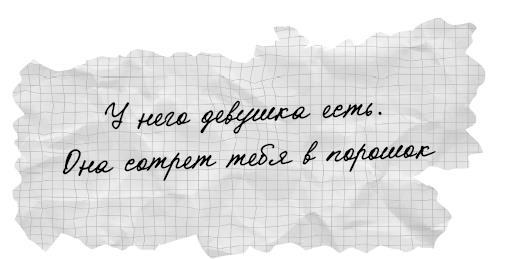 У него девушка есть.
Она сотрет тебя в порошок